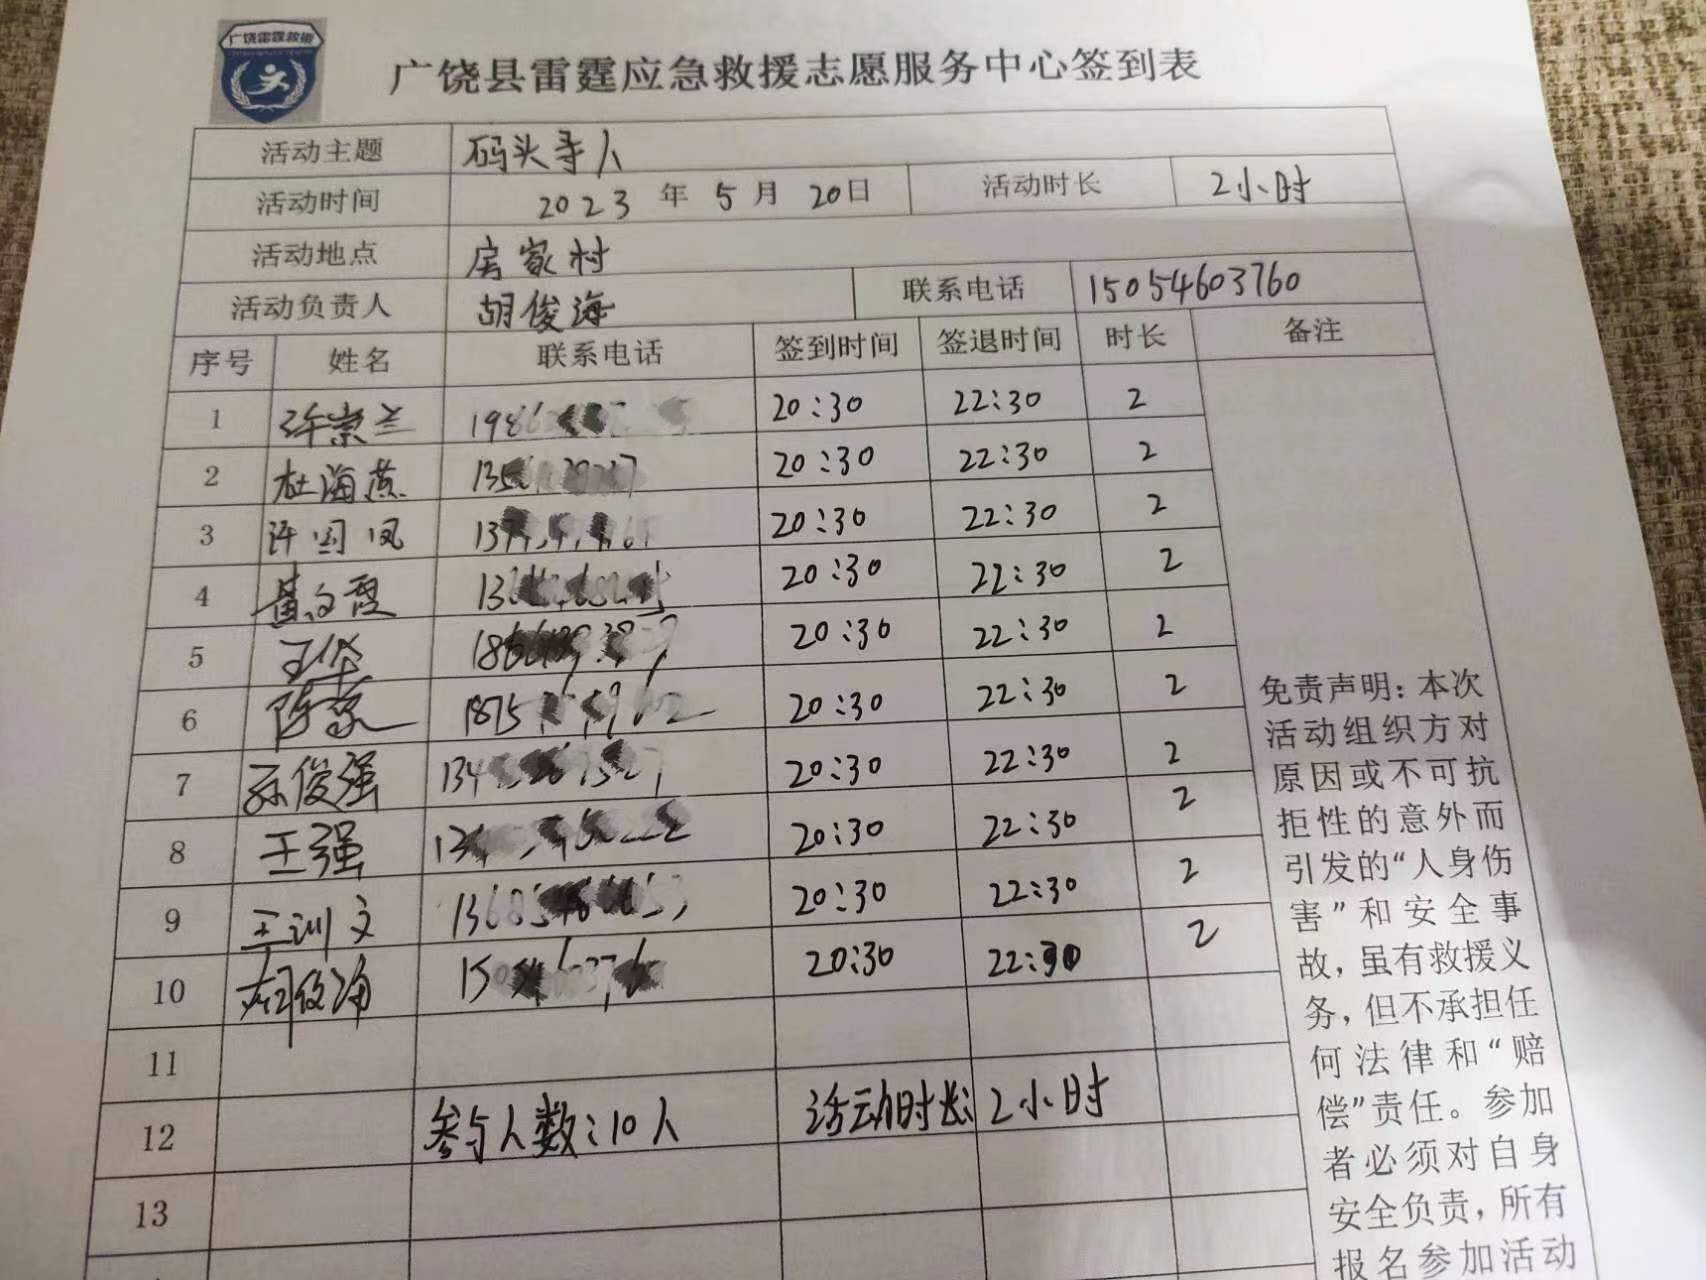 广饶雷霆救援
广饶县雷霆应急救援志愿服务中心签到表
活动主题 码头寻人
活动时间 2023 年 5 月 20日 活动时长 2小时
活动地点 房家村
活动负责人 胡俊海 联系电话 15054603760
序号 姓名 联系电话 签到时间 签退时间 时长 备注
1 许崇兰 20:30 22:30 2
2 杜海燕 20:30 22:30 2
3 许国凤 20:30 22:30 2
4 黄文霞 20:30 22:30 2
5 王华 20:30 22:30 2
6 20:30 22:30 2
7 孙俊强 20:30 22:30 2
8 王强 20:30 22:30 2
9 王训文 20:30 22:30 2
10 胡俊海 20:30 22:30 2
11
12 参与人数:10人 活动时长: 2小时
13
免责声明：本次
活动组织方对
原因或不可抗
拒性的意外而
引发的“人身伤
害”和安全事
故，虽有救援义
务，但不承担任
何法律和“赔
偿”责任。参加
者必须对自身
安全负责，所有
报名参加活动